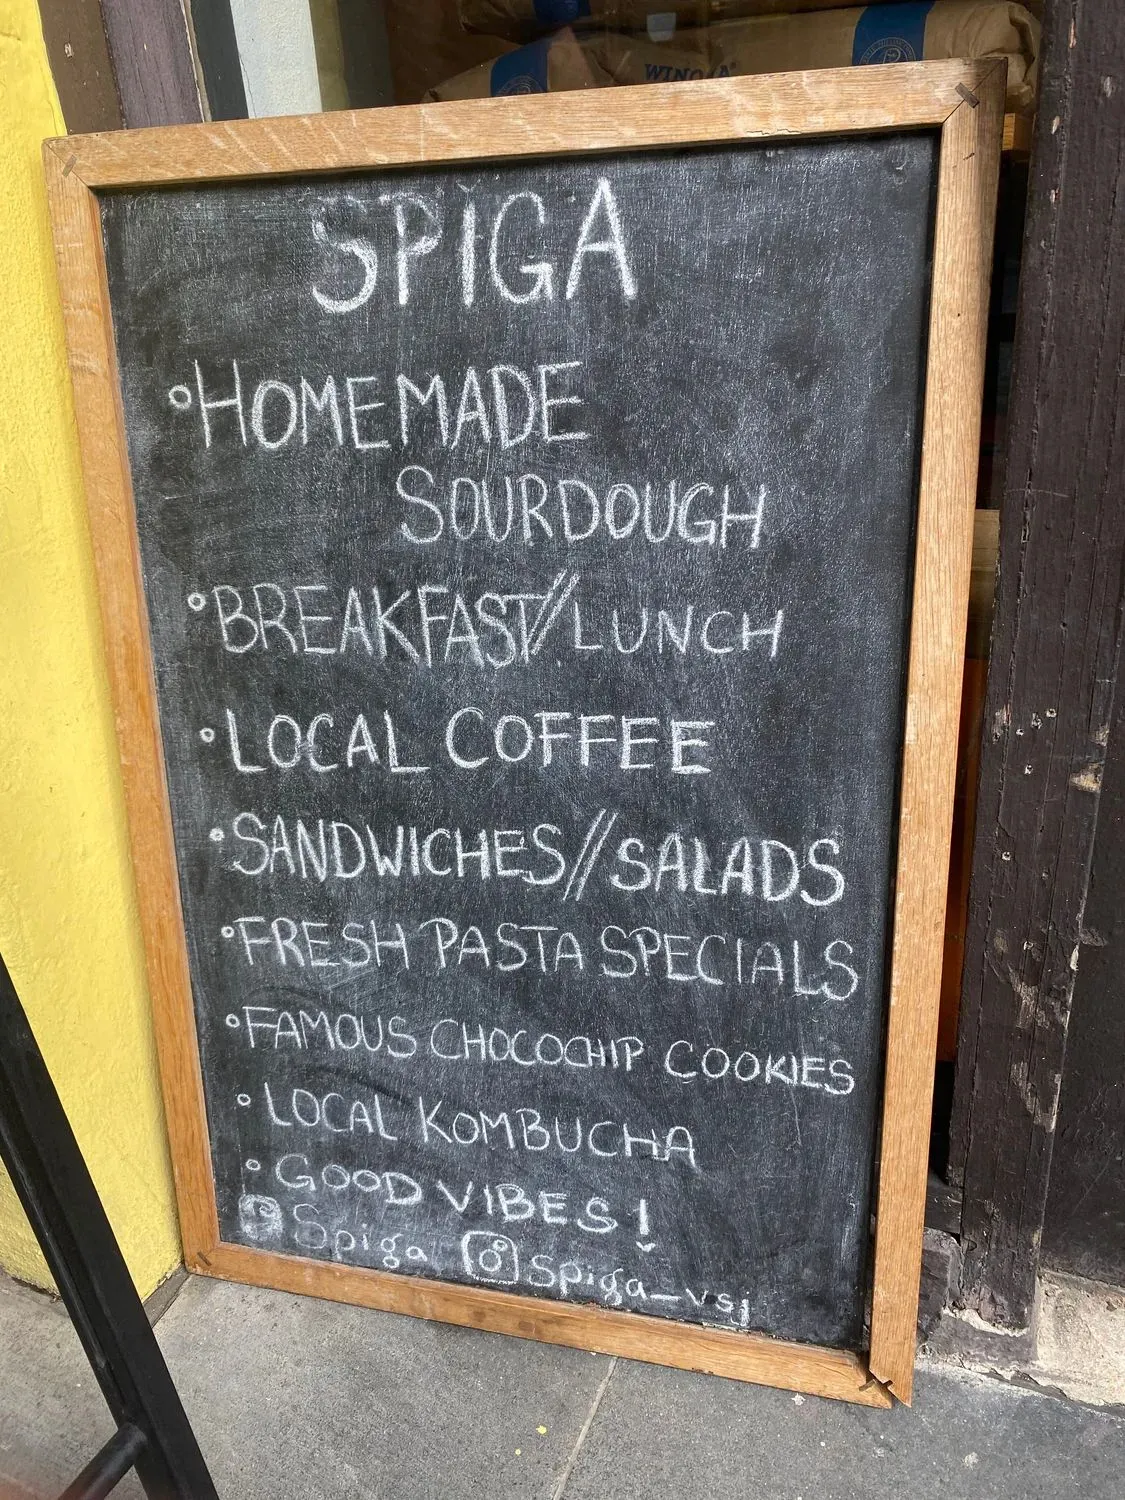 SPIGA
HOMEMADE
SOURDOUGH
BREAKFAST//LUNCH
LOCAL COFFEE
SANDWICHES//SALADS
FRESH PASTA SPECIALS
FAMOUS CHOCOCHIP COOKIES
LOCAL KOMBUCHA
GOOD VIBES!
Spiga Spiga_vsj